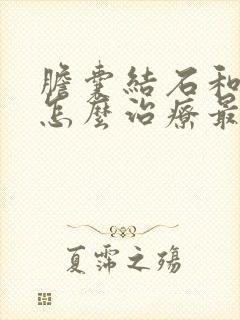 膽囊結石和
怎麼治療最
夏霈之殤